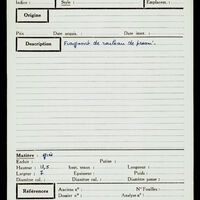 Indice : Style : Emplacem. :
Origine
Prix Date acquis. : Date inser. :
Description Fragment de rouleau de
Matière : grès
Enduit : Patine :
Hauteur : 11,5 haut. roues : Longueur :
Largeur : 7 Epaisseur : Poids :
Diamètre col. : Diamètre col. : Diamètre panse :
Références Anciens n° : N° Feuilles :
Dossier n° : Analyse n° :